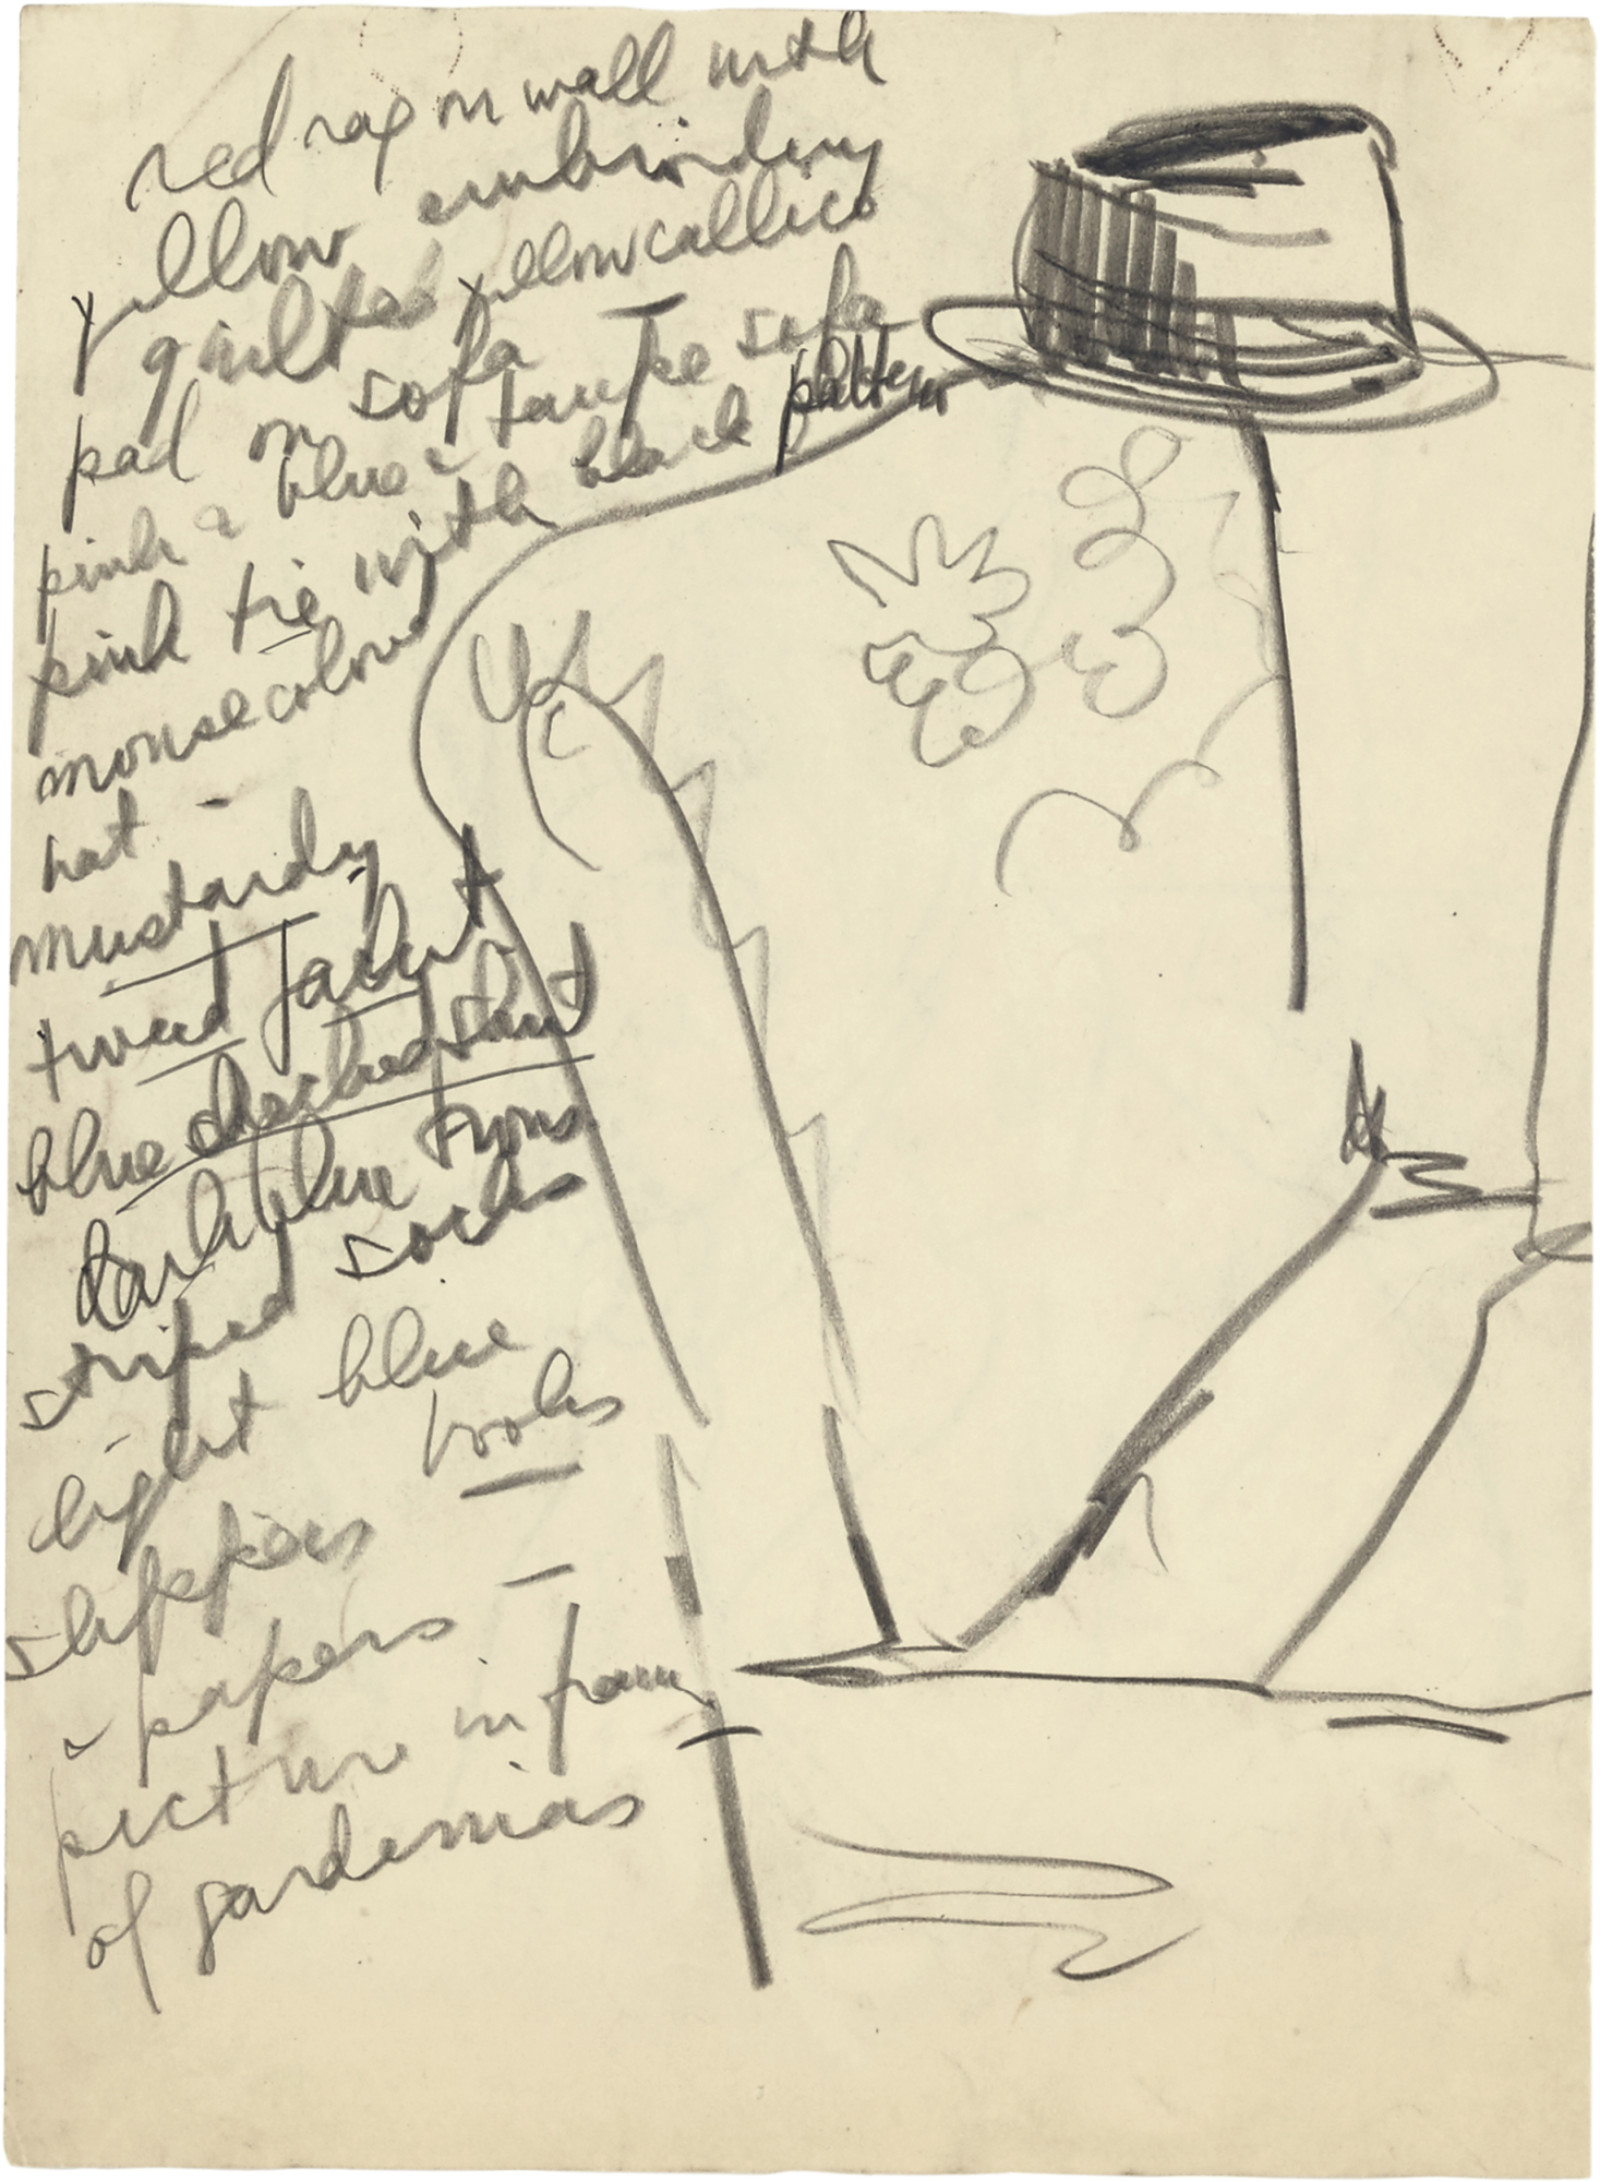 red rag on wall with
yellow embroidery
quilted yellow callico
pad on sofa — taupe sofa
pink & blue &
pink tie with black pattern
mouse colored
hat -
mustardy
tweed jacket
blue checked shirt
dark blue trous
striped socks
light blue
slippers books
& papers —
picture in frame
of gardenias